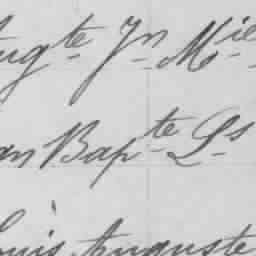 ugte Jn Mie
an Bapte Ls
ouis Auguste